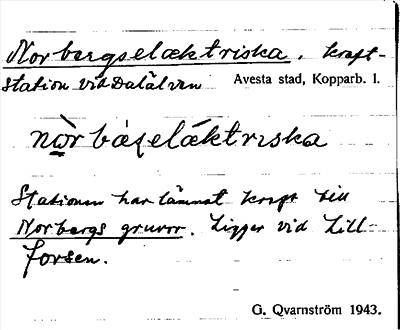 Norbergselektriska, kraft-
station vid Dalälven Avesta stad, Kopparb. l.
nòrbáʃeláktrıska
Stationen har lämnat kraft till
Norbergs gruvor. Ligger vid Lill-
forsen.
G. Qvarnström 1943.